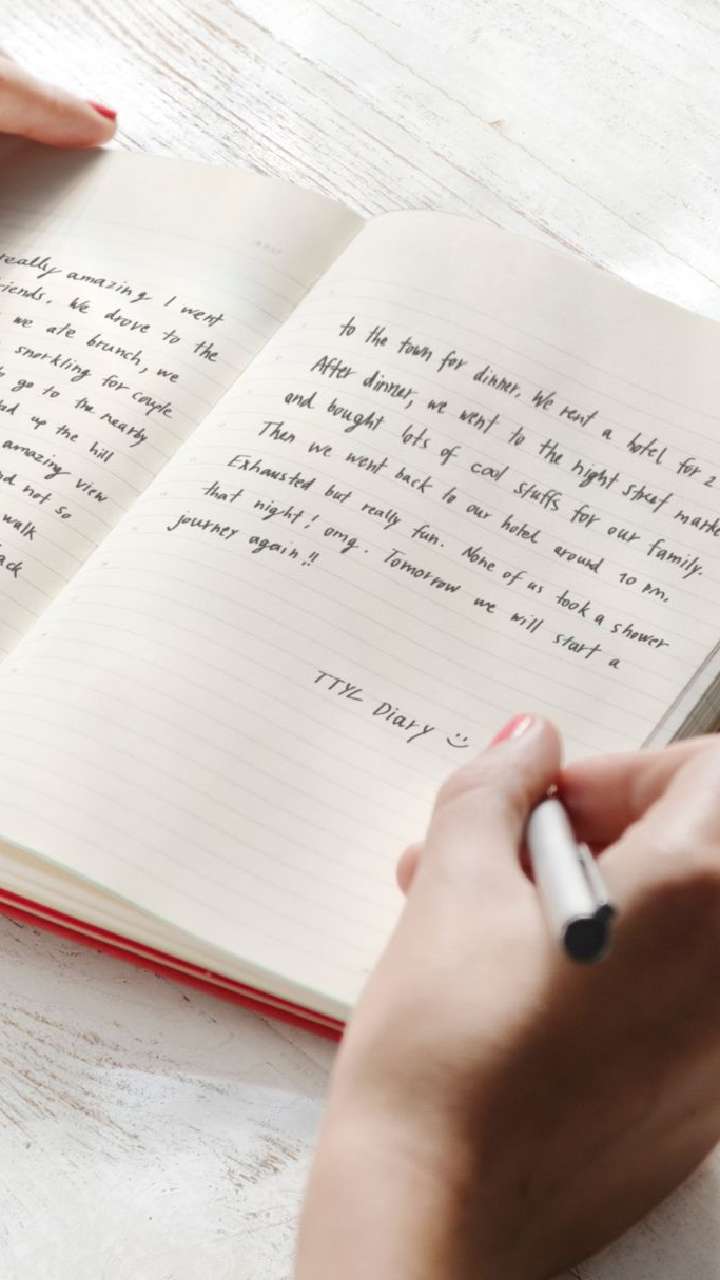 really amazing I went
friends. We drove to the
we ate brunch, we
snorkling for couple
go to the nearby
up the hill
amazing view
not so
walk
to the town for dinner. We rent a hotel for 2
After dinner, we went to the night street
and bought lots of cool stuffs for our family.
Then we went back to our hotel around 10 pm.
Exhausted but really fun. None of us took a shower
that night! omg. Tomorrow we will start a
journey again!!
TTYL Diary